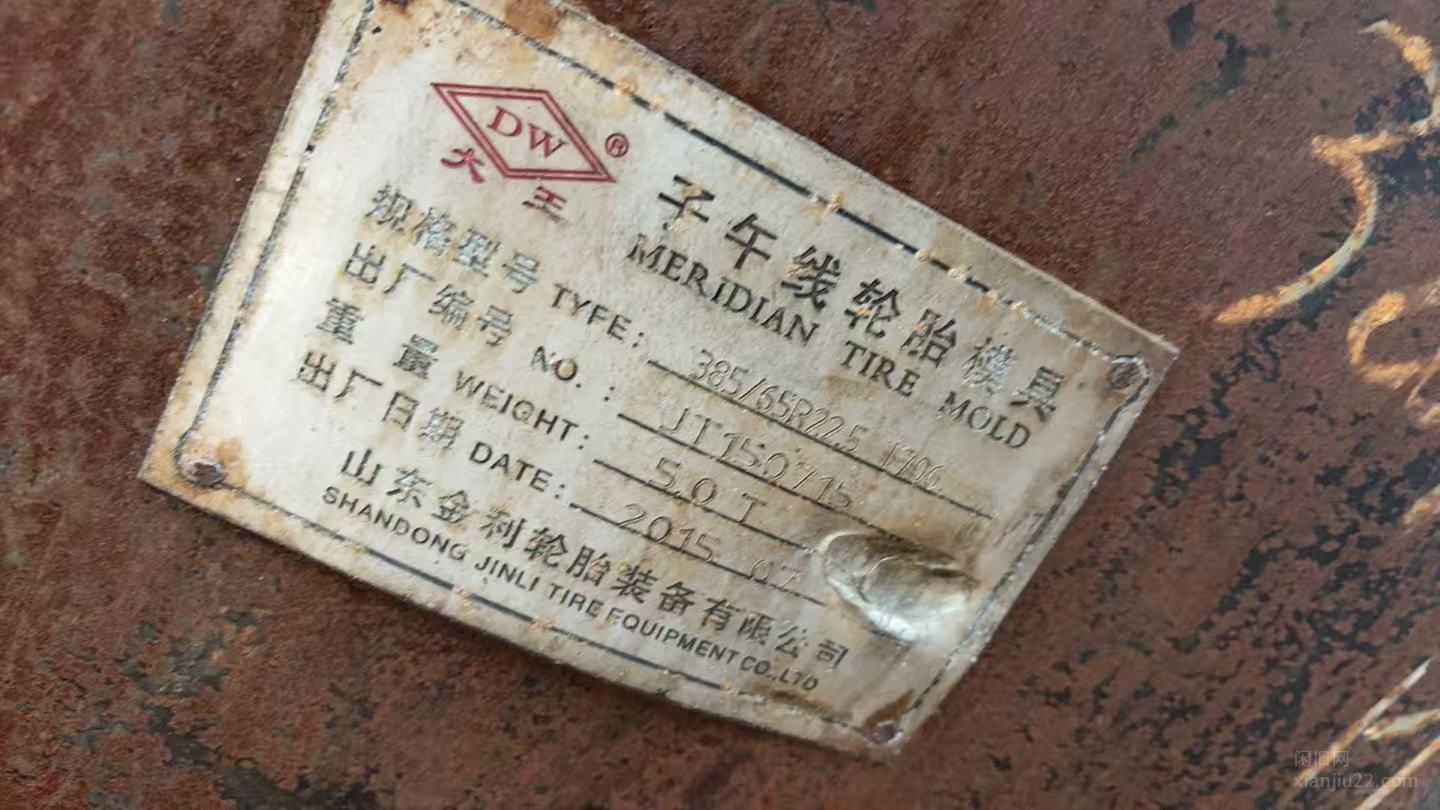 DW®
大王
子午线轮胎模具
MERIDIAN TIRE MOLD
规格型号 TYPE: 385/65R22.5 1706
出厂编号 NO. : JT150715
重量 WEIGHT: 5.0 T
出厂日期 DATE: 2015 07
山东金利轮胎装备有限公司
SHANDONG JINLI TIRE EQUIPMENT CO.,LTD
闲旧网
xianjiu22.com